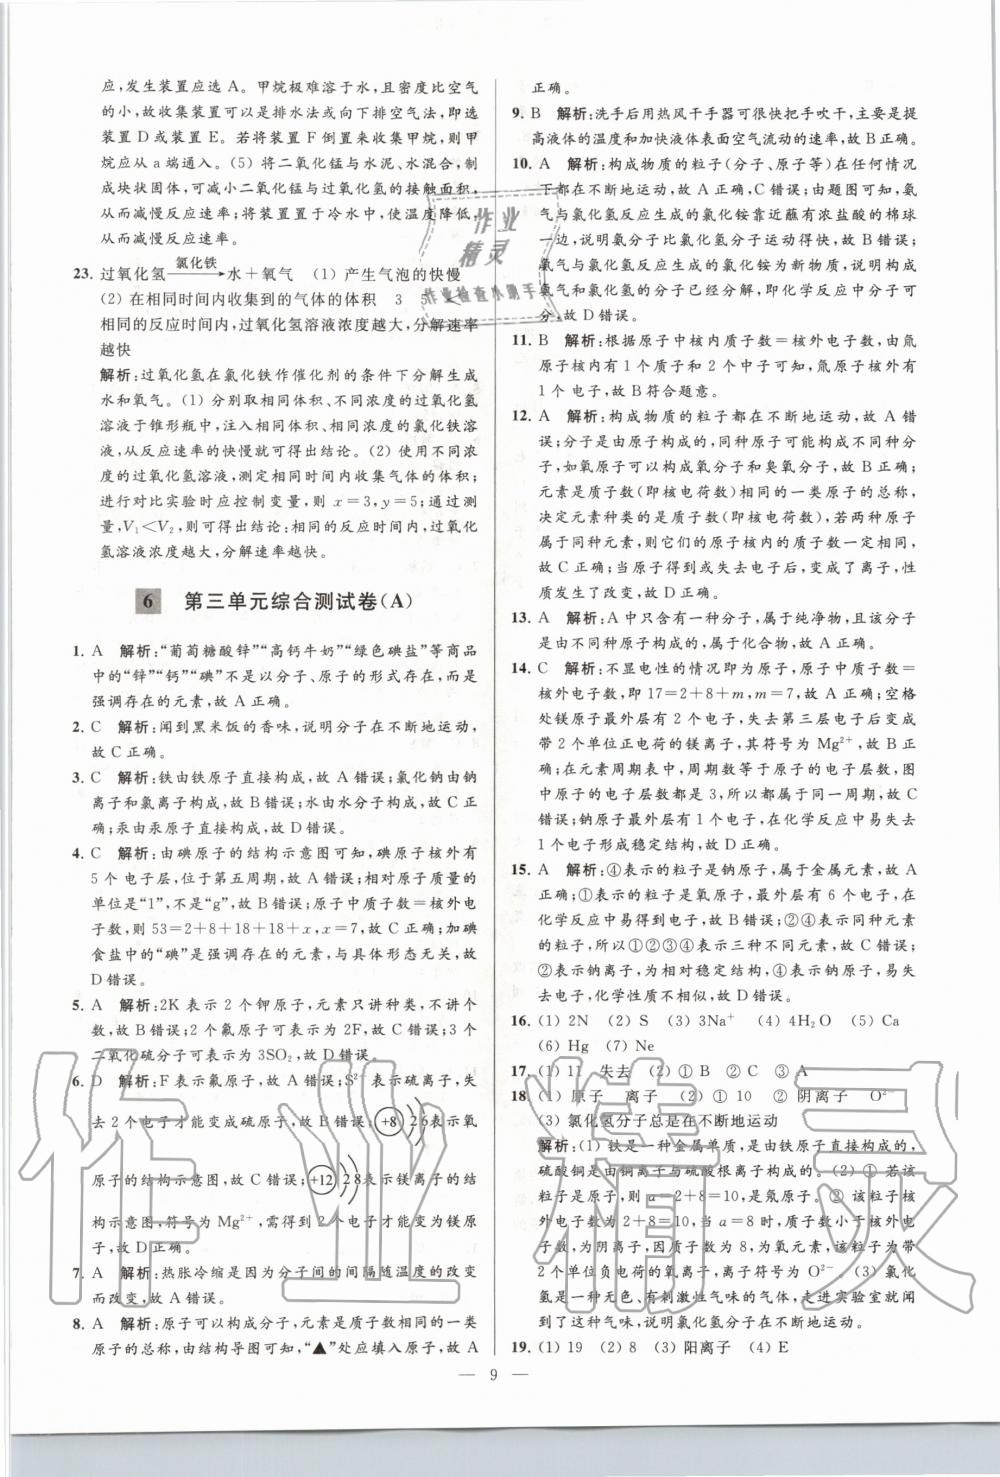 应,发生装置应选 A。甲烷极难溶于水,且密度比空气
的小,故收集装置可以是排水法或向下排空气法,即选
装置 D 或装置 E。若将装置 F 倒置来收集甲烷,则甲
烷应从 a 端通入。(5) 将二氧化锰与水泥、水混合,制
成块状固体,可减小二氧化锰与过氧化氢的接触面积,
从而减慢反应速率;将装置置于冷水中,使温度降低,
从而减慢反应速率。
23. 过氧化氢 氯化铁→ 水+氧气 (1) 产生气泡的快慢
(2) 在相同时间内收集到的气体的体积 3 5
相同的反应时间内,过氧化氢溶液浓度越大,分解速率
越快
解析:过氧化氢在氯化铁作催化剂的条件下分解生成
水和氧气。(1) 分别取相同体积、不同浓度的过氧化氢
溶液于锥形瓶中,注入相同体积、相同浓度的氯化铁溶
液,从反应的快慢就可得出结论。(2) 使用不同浓
度的过氧化氢溶液,测定相同时间内收集气体的体积;
进行对比实验时应控制变量,则 x=3,y=5;通过测
量,V₁<V₂,则可得出结论:相同的反应时间内,过氧化
氢溶液浓度越大,分解速率越快。
6 第三单元综合测试卷(A)
1. A 解析:“葡萄糖酸锌”“高钙牛奶”“绿色碘盐”等商品
中的“锌”“钙”“碘”不是以分子、原子的形式存在,而是
强调存在的元素,故 A 正确。
2. C 解析:闻到黑米饭的香味,说明分子在不断地运动,
故 C 正确。
3. C 解析:铁由铁原子直接构成,故 A 错误;氯化钠由钠
离子和氯离子构成,故 B 错误;水由水分子构成,故 C 正
确;汞由汞原子直接构成,故 D 错误。
4. C 解析:由碘原子的结构示意图可知,碘原子核外有
5 个电子层,位于第五周期,故 A 错误;相对原子质量的
单位是“1”,不是“g”,故 B 错误;原子中质子数=核外电
子数,则 53=2+8+18+18+x,x=7,故 C 正确;加碘
食盐中的“碘”是强调存在的元素,与具体形态无关,故
D 错误。
5. A 解析:2K 表示 2 个钾原子,元素只讲种类,不讲个
数,故 B 错误;2 个氟原子可表示为 2F,故 C 错误;3 个
二氧化硫分子可表示为 3SO₂,故 D 错误。
6. D 解析:F 表示氟原子,故 A 错误;S²⁻ 表示硫离子,失
去 2 个电子才能变成硫原子,故 B 错误; +8 2 6 表示氧
原子的结构示意图,故 C 错误; +12 2 8 表示镁离子的结
构示意图,符号为 Mg²⁺,需得到 2 个电子才能变为镁原
子,故 D 正确。
7. A 解析:热胀冷缩是因为分子间的间隔随温度的改变
而改变,故 A 错误。
8. A 解析:原子可以构成分子,元素是质子数相同的一类
原子的总称,由结构导图可知,“▲”处应填入原子,故 A
正确。
9. B 解析:洗手后用热风干手器可很快把手吹干,主要是提
高液体的温度和加快液体表面空气流动的速率,故 B 正确。
10. A 解析:构成物质的粒子(分子、原子等)在任何情况
下都在不断地运动,故 A 正确,C 错误;由题图可知,氨
气与氯化氢反应生成的氯化铵靠近蘸有浓盐酸的棉球
一边,说明氨分子比氯化氢分子运动得快,故 B 错误;
氨气与氯化氢反应生成的氯化铵为新物质,说明构成
氨气和氯化氢的分子已经分解,即化学反应中分子可
分,故 D 错误。
11. B 解析:根据原子中核内质子数=核外电子数,由氚
原子核内有 1 个质子和 2 个中子可知,氚原子核外有
1 个电子,故 B 符合题意。
12. A 解析:构成物质的粒子都在不断地运动,故 A 错
误;分子是由原子构成的,同种原子可能构成不同种分
子,如氧原子可以构成氧分子和臭氧分子,故 B 正确;
元素是质子数(即核电荷数)相同的一类原子的总称,
决定元素种类的是质子数(即核电荷数),若两种原子
属于同种元素,则它们的原子核内的质子数一定相同,
故 C 正确;当原子得到或失去电子后,变成了离子,性
质发生了改变,故 D 正确。
13. A 解析:A 中只含有一种分子,属于纯净物,且该分子
是由不同种原子构成的,属于化合物,故 A 正确。
14. C 解析:不显电性的情况即为原子,原子中质子数=
核外电子数,即 17=2+8+m,m=7,故 A 正确;空格
处镁原子最外层有 2 个电子,失去第三层电子后变成
带 2 个单位正电荷的镁离子,其符号为 Mg²⁺,故 B 正
确;在元素周期表中,周期数等于原子的电子层数,图
中原子的电子层数都是 3,所以都属于同一周期,故 C
错误;钠原子最外层有 1 个电子,在化学反应中易失去
1 个电子形成稳定结构,故 D 正确。
15. A 解析:④表示的粒子是钠原子,属于金属元素,故 A
正确;①表示的粒子是氧原子,最外层有 6 个电子,在
化学反应中易得到电子,故 B 错误;②④表示同种元素
的粒子,所以①②③④表示三种不同元素,故 C 错误;
②表示钠离子,为相对稳定结构,④表示钠原子,易失
去电子,化学性质不相似,故 D 错误。
16. (1) 2N (2) S (3) 3Na⁺ (4) 4H₂O (5) Ca
(6) Hg (7) Ne
17. (1) 11 失去 (2) ① B ② C ③ A
18. (1) 原子 离子 (2) ① 10 ② 阴离子 O²⁻
(3) 氯化氢分子总是在不断地运动
解析:(1) 铁是一种金属单质,是由铁原子直接构成的,
硫酸铜是由铜离子与硫酸根离子构成的。(2) ① 若该
粒子是原子,则 a=2+8=10,是氖原子。② 该粒子核
外电子数为 2+8=10,当 a=8 时,质子数小于核外电
子数,为阴离子,因质子数为 8,为氧元素,该粒子为带
2 个单位负电荷的氧离子,离子符号为 O²⁻。(3) 氯化
氢是一种无色、有刺激性气味的气体,走进实验室就闻
到了这种气味,说明氯化氢分子在不断地运动。
19. (1) 19 (2) 8 (3) 阳离子 (4) E
— 9 —
作业
精灵
作业检查小助手
作业精灵